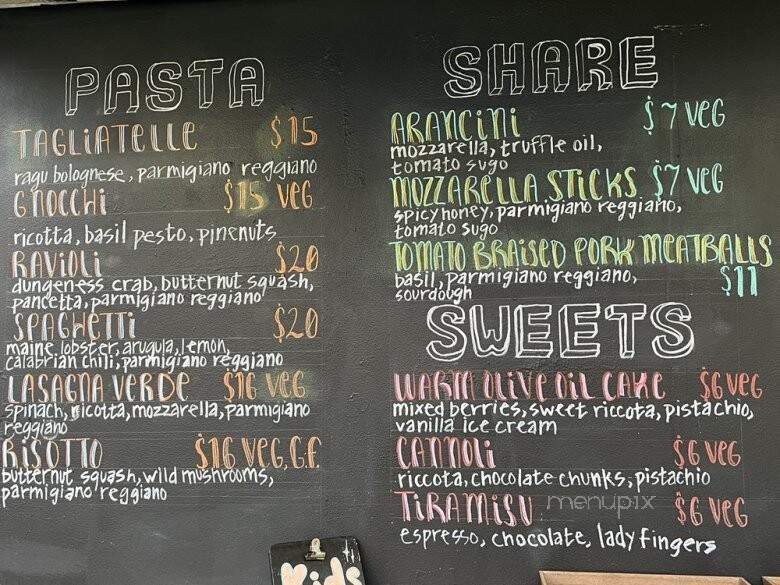 PASTA
TAGLIATELLE $15
ragu bolognese, parmigiano reggiano
GNOCCHI $15 VEG
ricotta, basil pesto, pinenuts
RAVIOLI $20
dungeness crab, butternut squash,
pancetta, parmigiano reggiano
SPAGHETTI $20
maine lobster, arugula, lemon,
calabrian chili, parmigiano reggiano
LASAGNA VERDE $16 VEG
spinach, ricotta, mozzarella, parmigiano
reggiano
RISOTTO $16 VEG, G.F.
butternut squash, wild mushrooms,
parmigiano reggiano
SHARE
ARANCINI $7 VEG
mozzarella, truffle oil,
tomato sugo
MOZZARELLA STICKS $7 VEG
spicy honey, parmigiano reggiano,
tomato sugo
TOMATO BRAISED PORK MEATBALLS
basil, parmigiano reggiano, $11
sourdough
SWEETS
WARM OLIVE OIL CAKE $6 VEG
mixed berries, sweet riccota, pistachio,
vanilla ice cream
CANNOLI $6 VEG
riccota, chocolate chunks, pistachio
TIRAMISU $6 VEG
espresso, chocolate, lady fingers
menupix
Kids